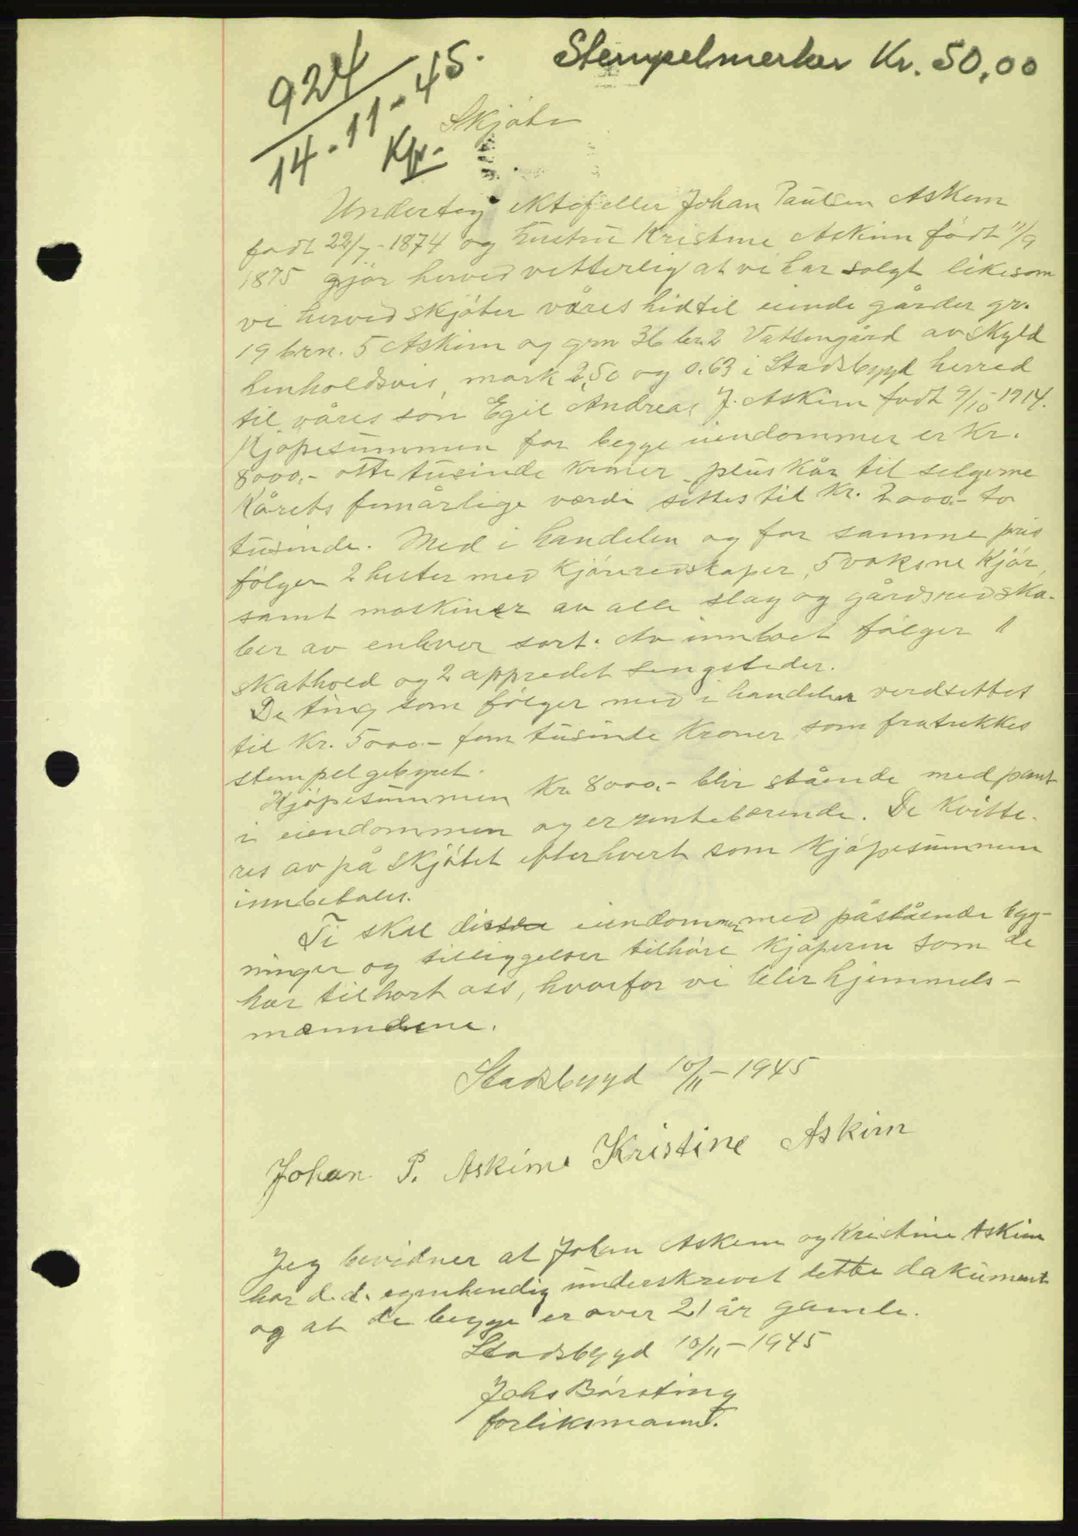 924
14-11-45.
Kpr.
Stempelmerker Kr. 50,00
Skjøte
Underteg ektefeller Johan Paulsen Askim
født 22/7-1874 og hustru Kristine Askim født 11/9
1875 gjør herved vitterlig at vi har solgt likesom
vi herved skjøter våres hidtil eiende gårder gr.
19 brn. 5 Askim og grn 36 br. 2 Vattengård av Skyld
henholdsvis mark 2,50 og 0.63 i Stadsbygd herred
til våres søn Egil Andreas J. Askim født 9/10-1914.
Kjøpesummen for begge eiendommer er Kr.
8000,- otte tusinde kroner pluss kår til selgerne
Kårets femårlige værdi settes til Kr. 2000,- to
tusinde. Med i handelen og for samme pris
følger 2 hester med kjøreredskaper, 5 voksne Kjør,
samt maskiner av alle slag og gårdsredska-
ber av enhver sort. Av innboet følger 11
skathold og 2 oppredet sengsteder.
De ting som følger med i handelen verdsettes
til Kr. 5000,- fem tusinde Kroner som fratrekkes
stempelgebyret.
Kjøpesummen Kr. 8000,- blir stående med pant
i eiendommen og er rentebærende. De kvitte-
res av på skjøtet efterhvert som Kjøpesummen
innbetales.
Ti skal disse eiendommer med påstående byg-
ninger og tilliggelser tilhøre Kjøperen som de
har tilhørt oss, hvorfor vi blir hjemmels-
mænndene.
Stadsbygd 10/11-1945
Johan P. Askim. Kristine Askim
Jeg bevidner at Johan Askim og Kristine Askim
har d.d. egenhendig underskrevet dette dokument
og at de begge er over 21 år gamle.
Stadsbygd 10/11-1945
Johs Børsting
forliksmann.